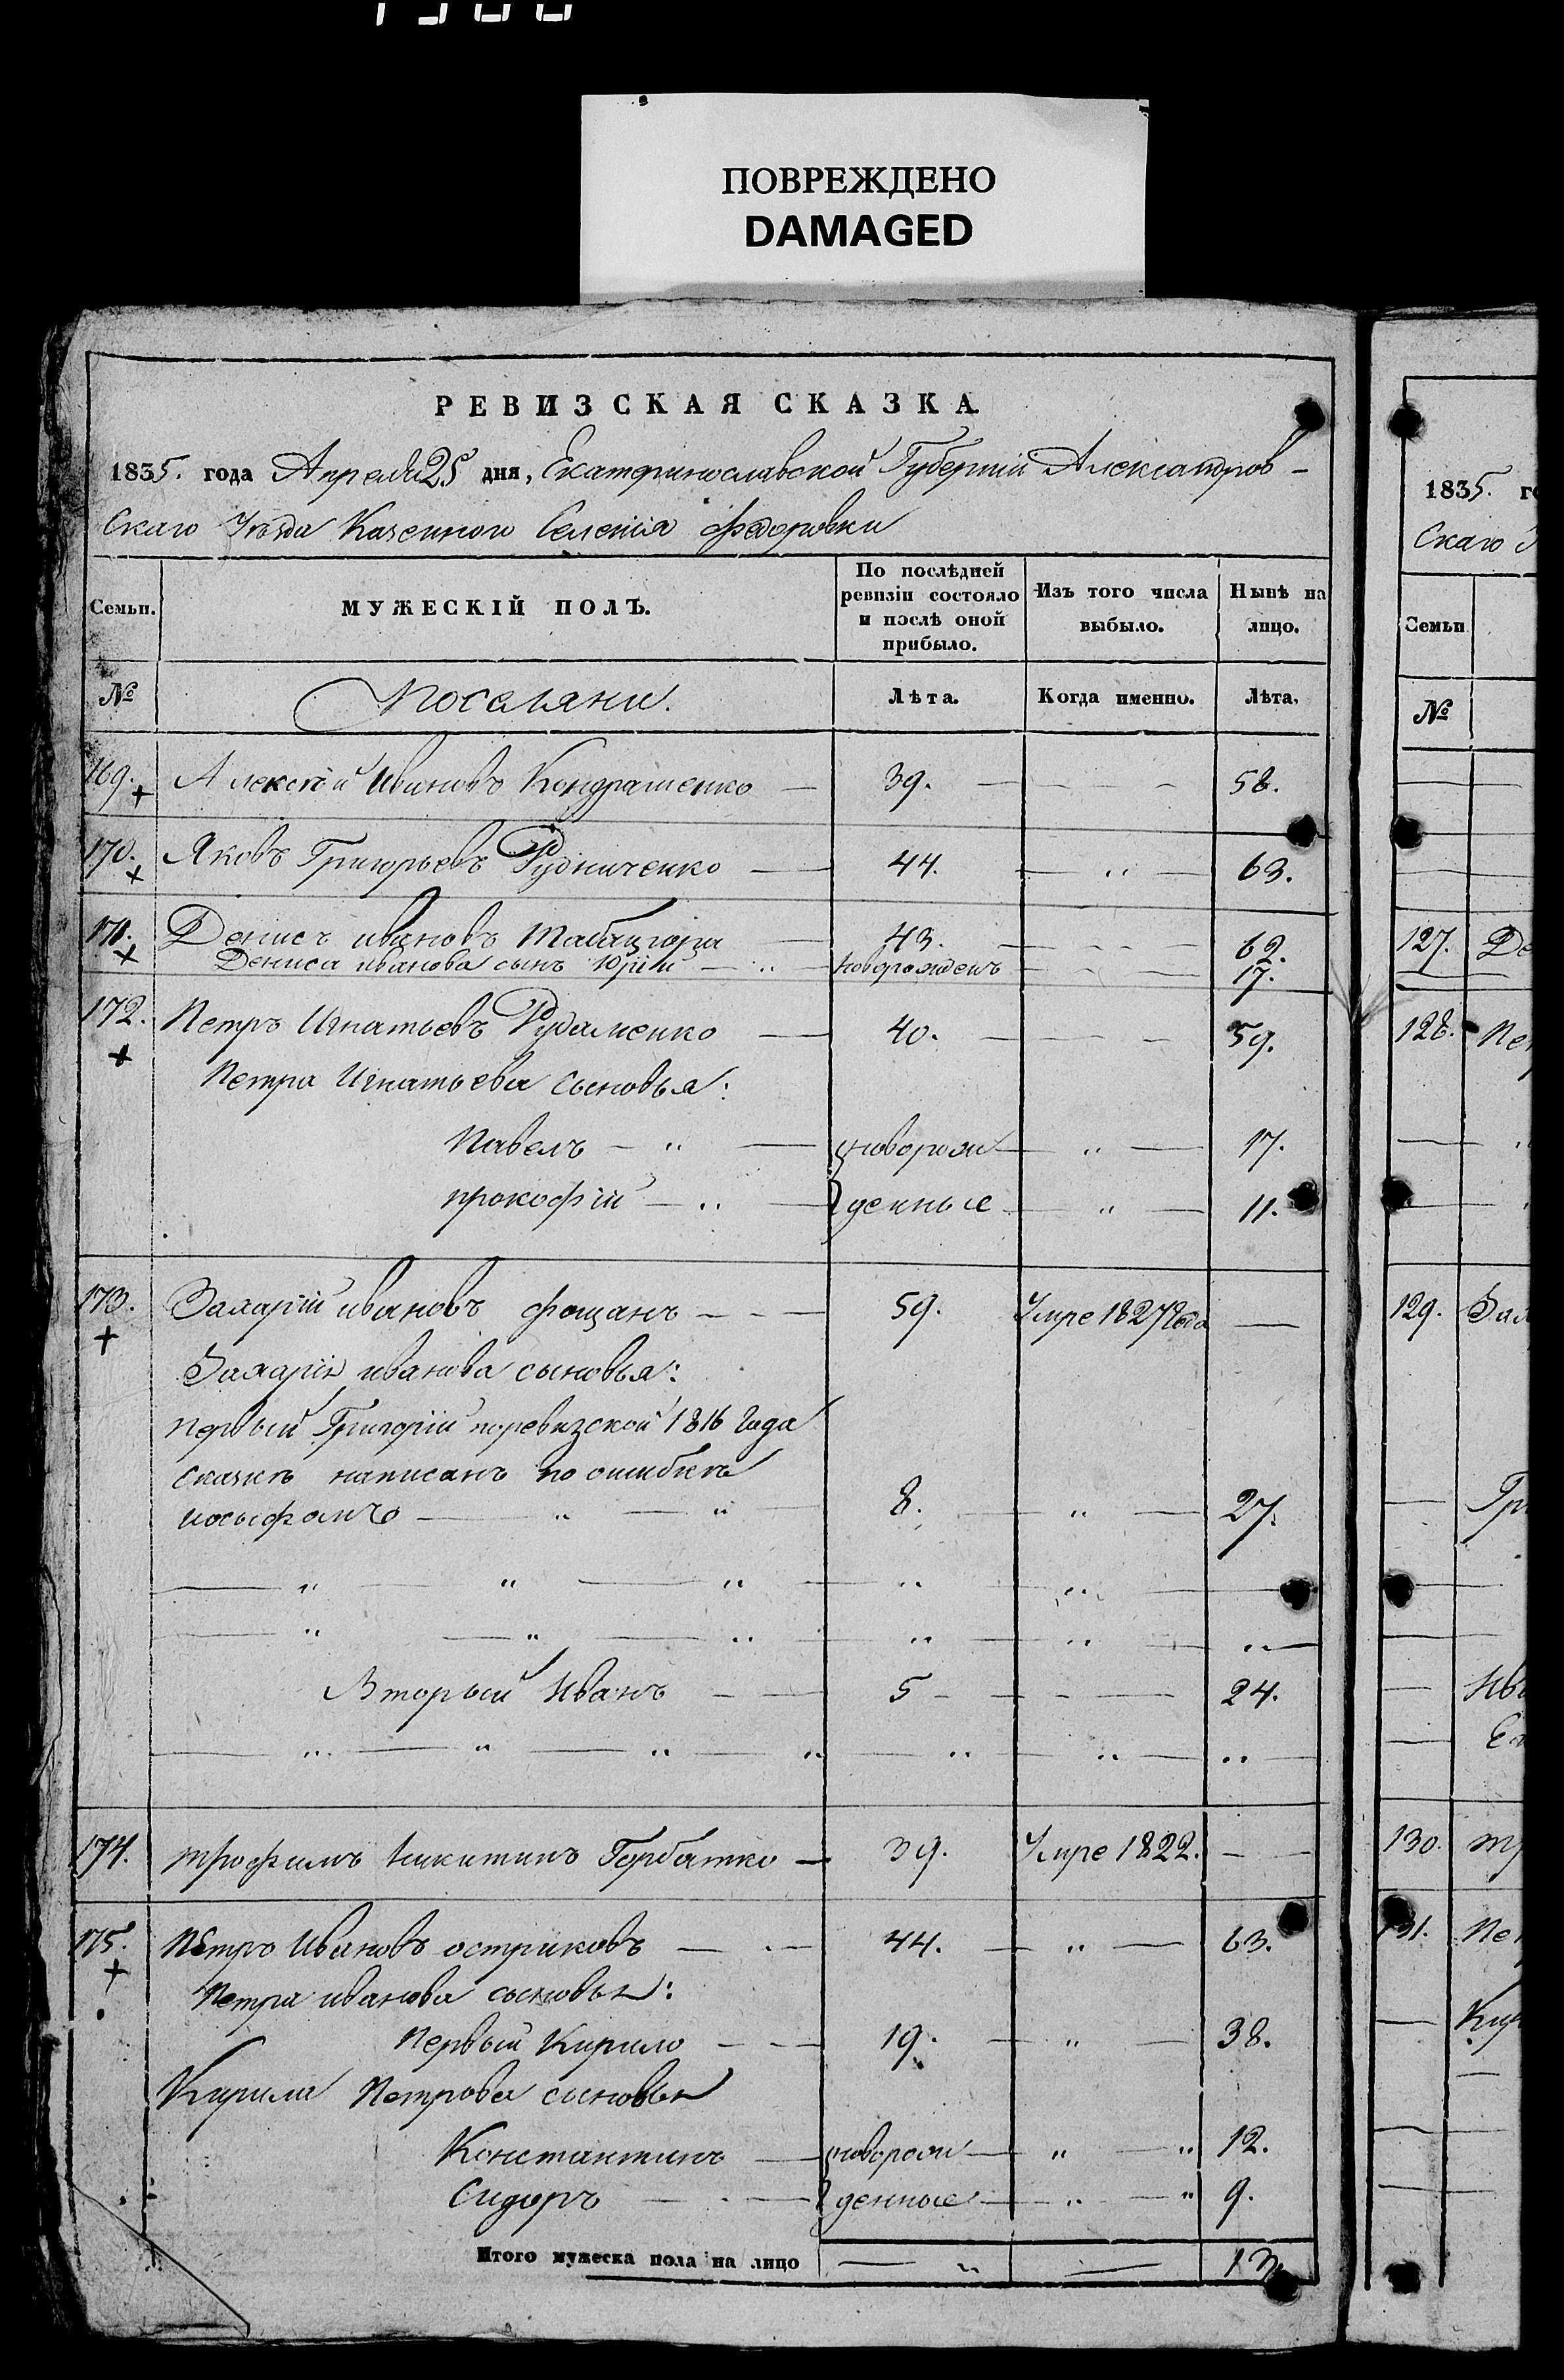 ПОВРЕЖДЕНО
DAMAGED
РЕВИЗСКАЯ СКАЗКА
1835. года Апреля 25 дня, Екатеринославской Губерніи Александров-
скаго Уѣзда Казенного Селенія Федоровки
Семьи. МУЖЕСКІЙ ПОЛЪ. По послѣдней ревизіи состояло и послѣ оной прибыло. Изъ того числа выбыло. Нынѣ на лицо.
№ Поселяни. Лѣта. Когда именно. Лѣта.
169. Алексѣй Ивановъ Кондрашенко 39. 58.
170. Яковъ Григорьевъ Рудниченко 44. 63.
171. Денисъ ивановъ 43. 62.
Дениса иванова сынъ Юрій новорожденъ 17.
172. Петръ Игнатьевъ 40. 59.
Петра Игнатьева сыновья:
Павелъ новорож 17.
прокофій денные 11.
173. Захарій ивановъ фощанъ 59. Умре 1827 года
Захарія иванова сыновья:
первый Григорій поревизской 1816 года
сказкѣ написанъ по ошибкѣ
иосыфомъ 8. 27.
Вторый Иванъ 5 24.
174. трофимъ Никитинъ Горбатко 39. Умре 1822.
175. Пётръ Ивановъ остриковъ 44. 63.
Петра иванова сыновья:
Первый Кирило 19. 38.
Кирила Петрова сыновья
Константинъ новорож 12.
Сидоръ денные 9.
Итого мужеска пола на лицо 13.
1835. го
Скаго
Семьи
№
127. Де
128. Пе
129. Зах
Гри
Ива
130. тр
131. Пе
Кир